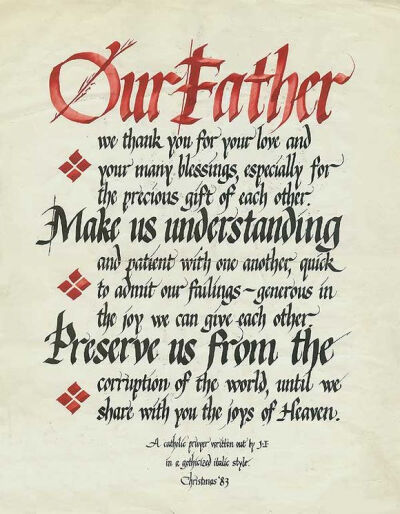 Our Father
we thank you for your love and
your many blessings, especially for
the precious gift of each other.
Make us understanding
and patient with one another, quick
to admit our failings - generous in
the joy we can give each other
Preserve us from the
corruption of the world, until we
share with you the joys of Heaven.
A catholic prayer written out by J.F
in a gothicized italic style.
Christmas '83